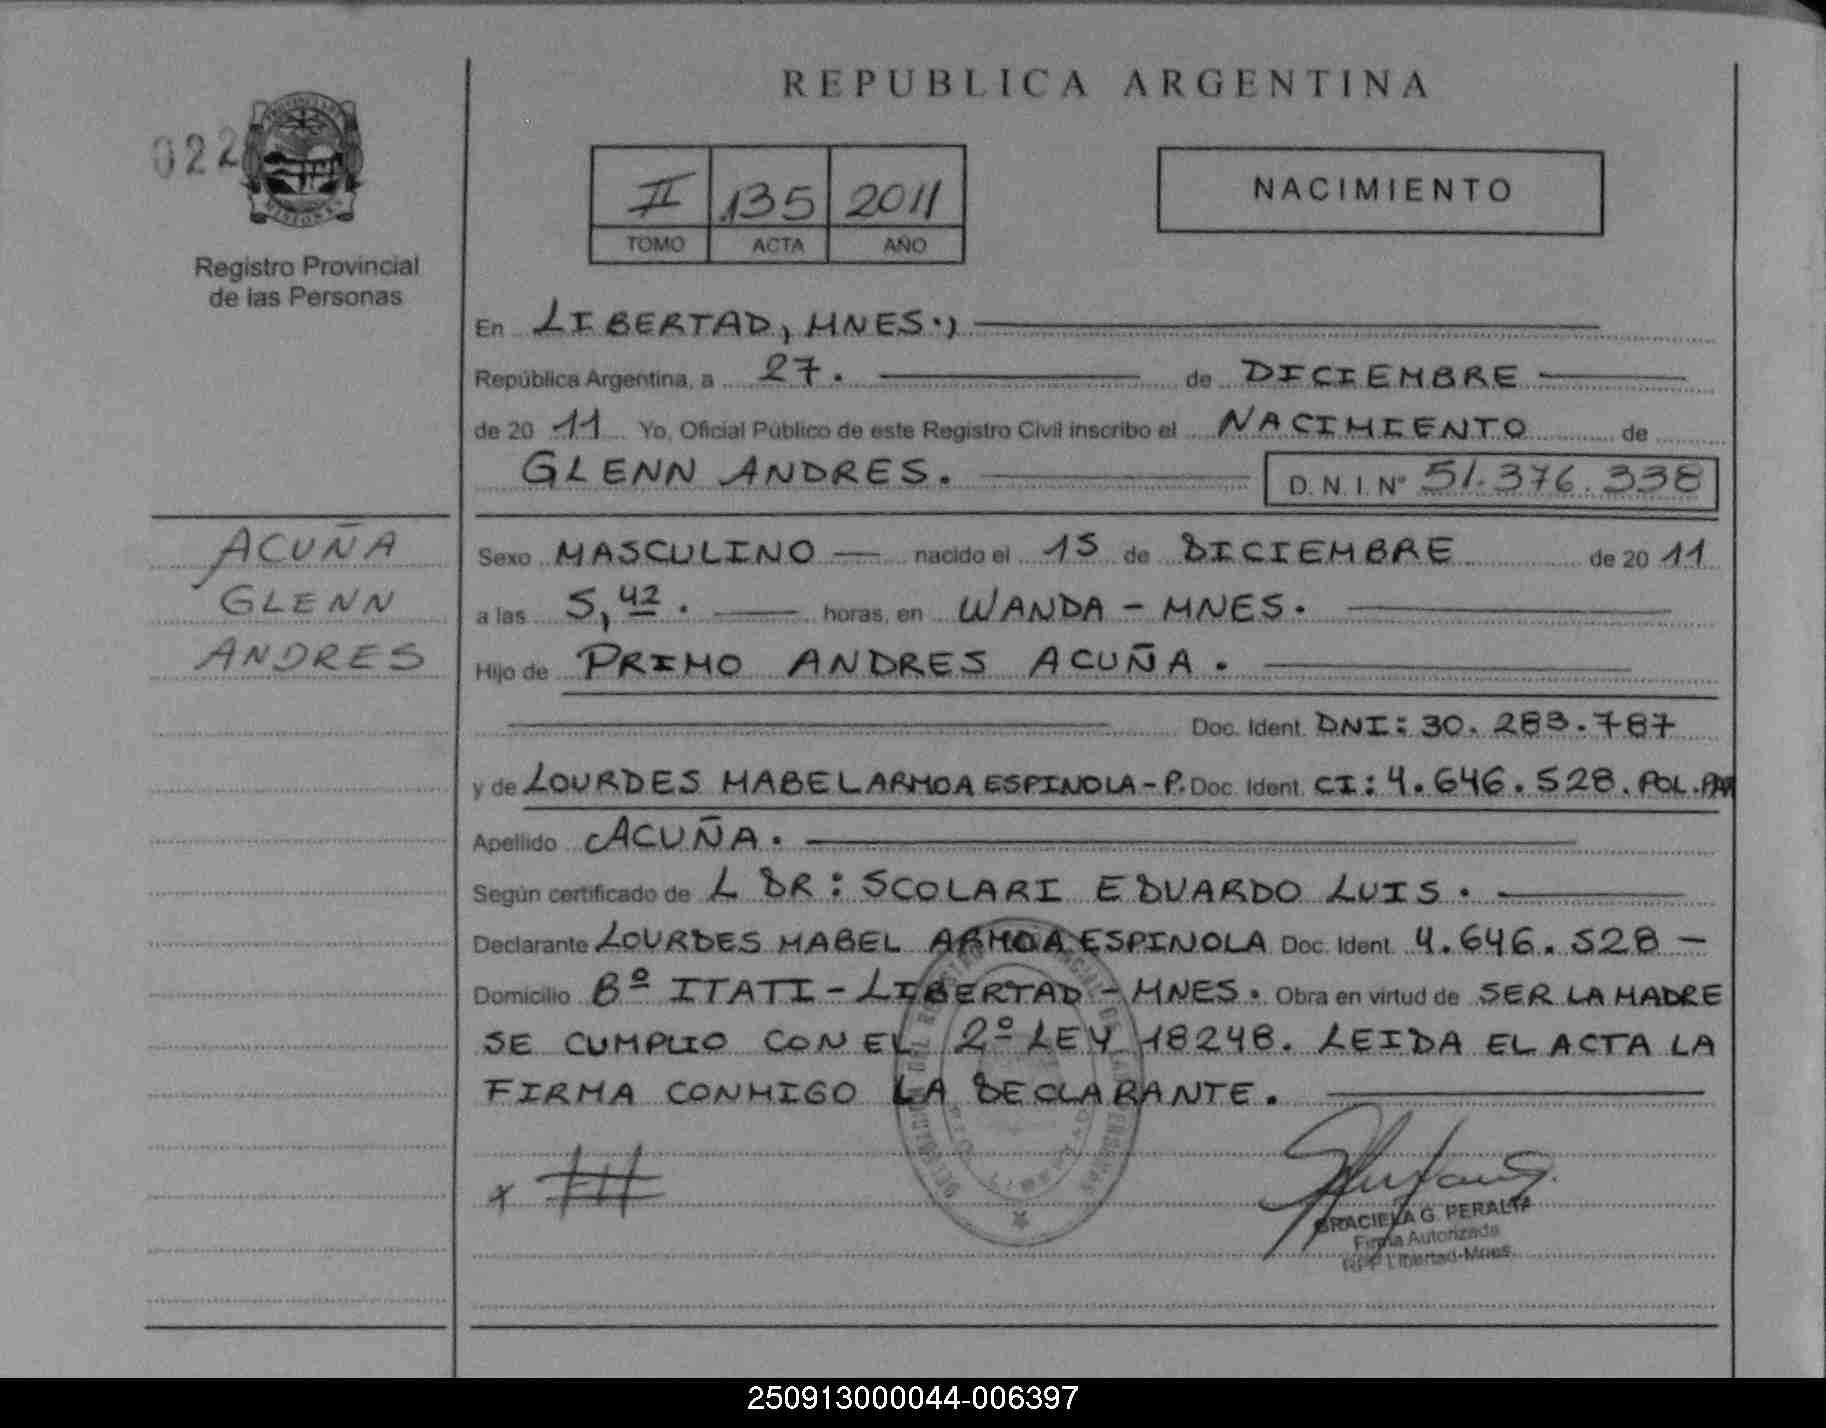 REPUBLICA ARGENTINA
022
PROVINCIA DE
MISIONES
Registro Provincial
de las Personas
II 135 2011
TOMO ACTA AÑO
NACIMIENTO
En LIBERTAD, MNES.,
República Argentina, a 27. de DICIEMBRE
de 20 11 Yo, Oficial Público de este Registro Civil inscribo el NACIMIENTO de
GLENN ANDRES. D.N.I. Nº 51.376.338
ACUÑA
GLENN
ANDRES
Sexo MASCULINO nacido el 15 de DICIEMBRE de 20 11
a las 5,42. horas, en WANDA - MNES.
Hijo de PRIMO ANDRES ACUÑA.
Doc. Ident. DNI: 30.283.787
y de LOURDES MABEL ARMOA ESPINOLA - P. Doc. Ident. CI: 4.646.528. POL. PAR
Apellido ACUÑA.
Según certificado de L DR: SCOLARI EDUARDO LUIS.
Declarante LOURDES MABEL ARMOA ESPINOLA Doc. Ident. 4.646.528 -
Domicilio Bº ITATI - LIBERTAD - MNES. Obra en virtud de SER LA MADRE
SE CUMPLIO CON EL 2º LEY 18248. LEIDA EL ACTA LA
FIRMA CONMIGO LA DECLARANTE.
GRACIELA G. PERALTA
Firma Autorizada
RPP Libertad-Mnes.
250913000044-006397